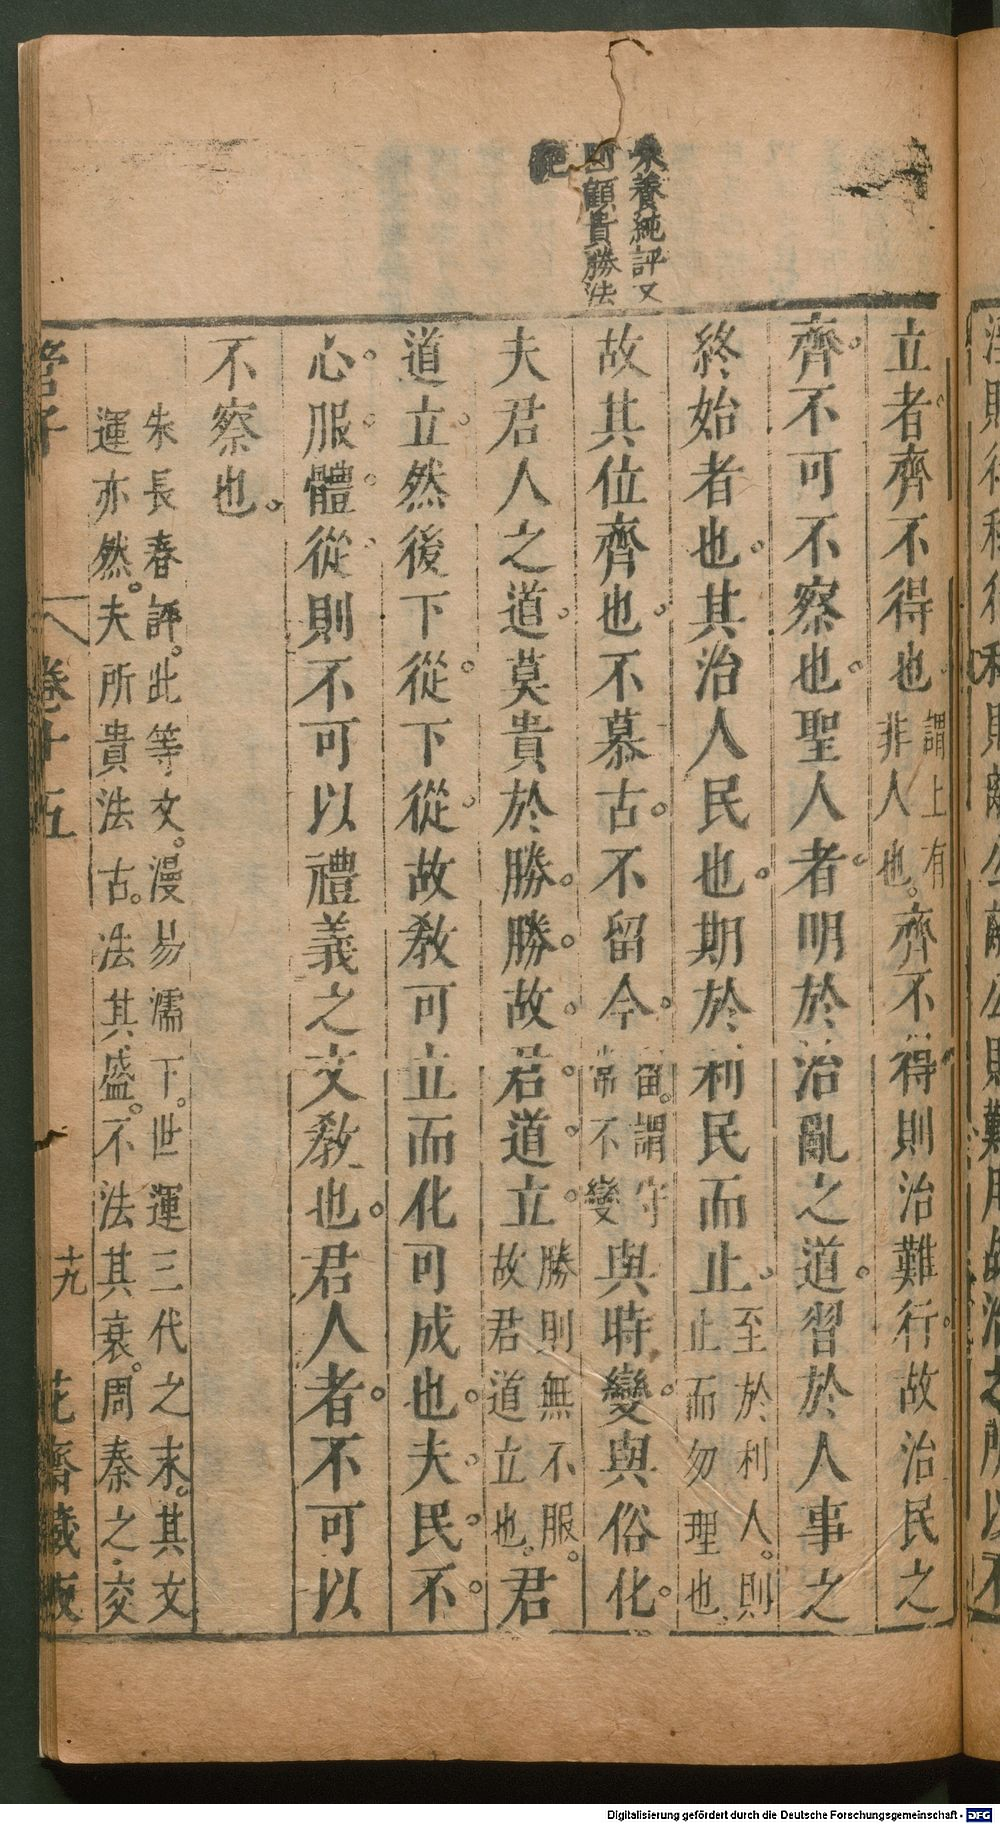 朱養純評又
顧貴勝法
立者齊不得也謂上有非人也。齊不得則治難行。故治民之
齊。不可不察也。聖人者。明於治亂之道。習於人事之
終始者也。其治人民也。期於利民而止。至於利人。則止而勿理也
故其位齊也。不慕古。不留今。留。謂守常不變與時變。與俗化。
夫君人之道。莫貴於勝。勝。故。君。道。立。勝則無不服。故君道立也。君
道立。然後下從。下從。故教可立而化可成也。夫民。不。
心。服。體。從。則不可以禮義之文教也。君人者。不可以
不察也。
朱長春評。此等文。漫易濡下。世運三代之末。其文
運亦然。夫所貴法古。法其盛。不法其衰。周秦之交
管子
卷十五
十九
花齋藏板
Digitalisierung gefördert durch die Deutsche Forschungsgemeinschaft - DFG